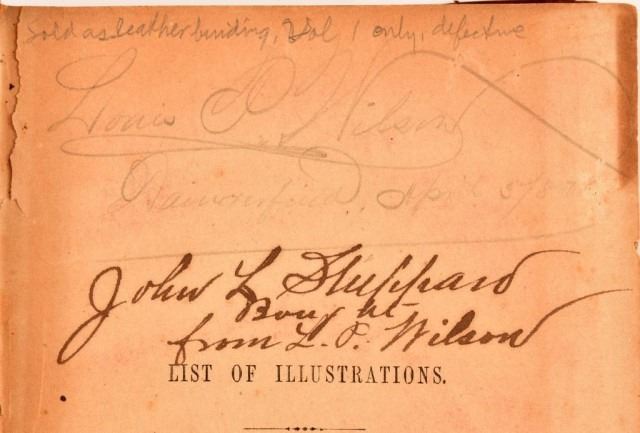 Sold as leather binding, Vol 1 only, defective
Louis P. Wilson
Daingerfield, April 5/87
John L Sheppard
Bought
from L. P. Wilson
LIST OF ILLUSTRATIONS.